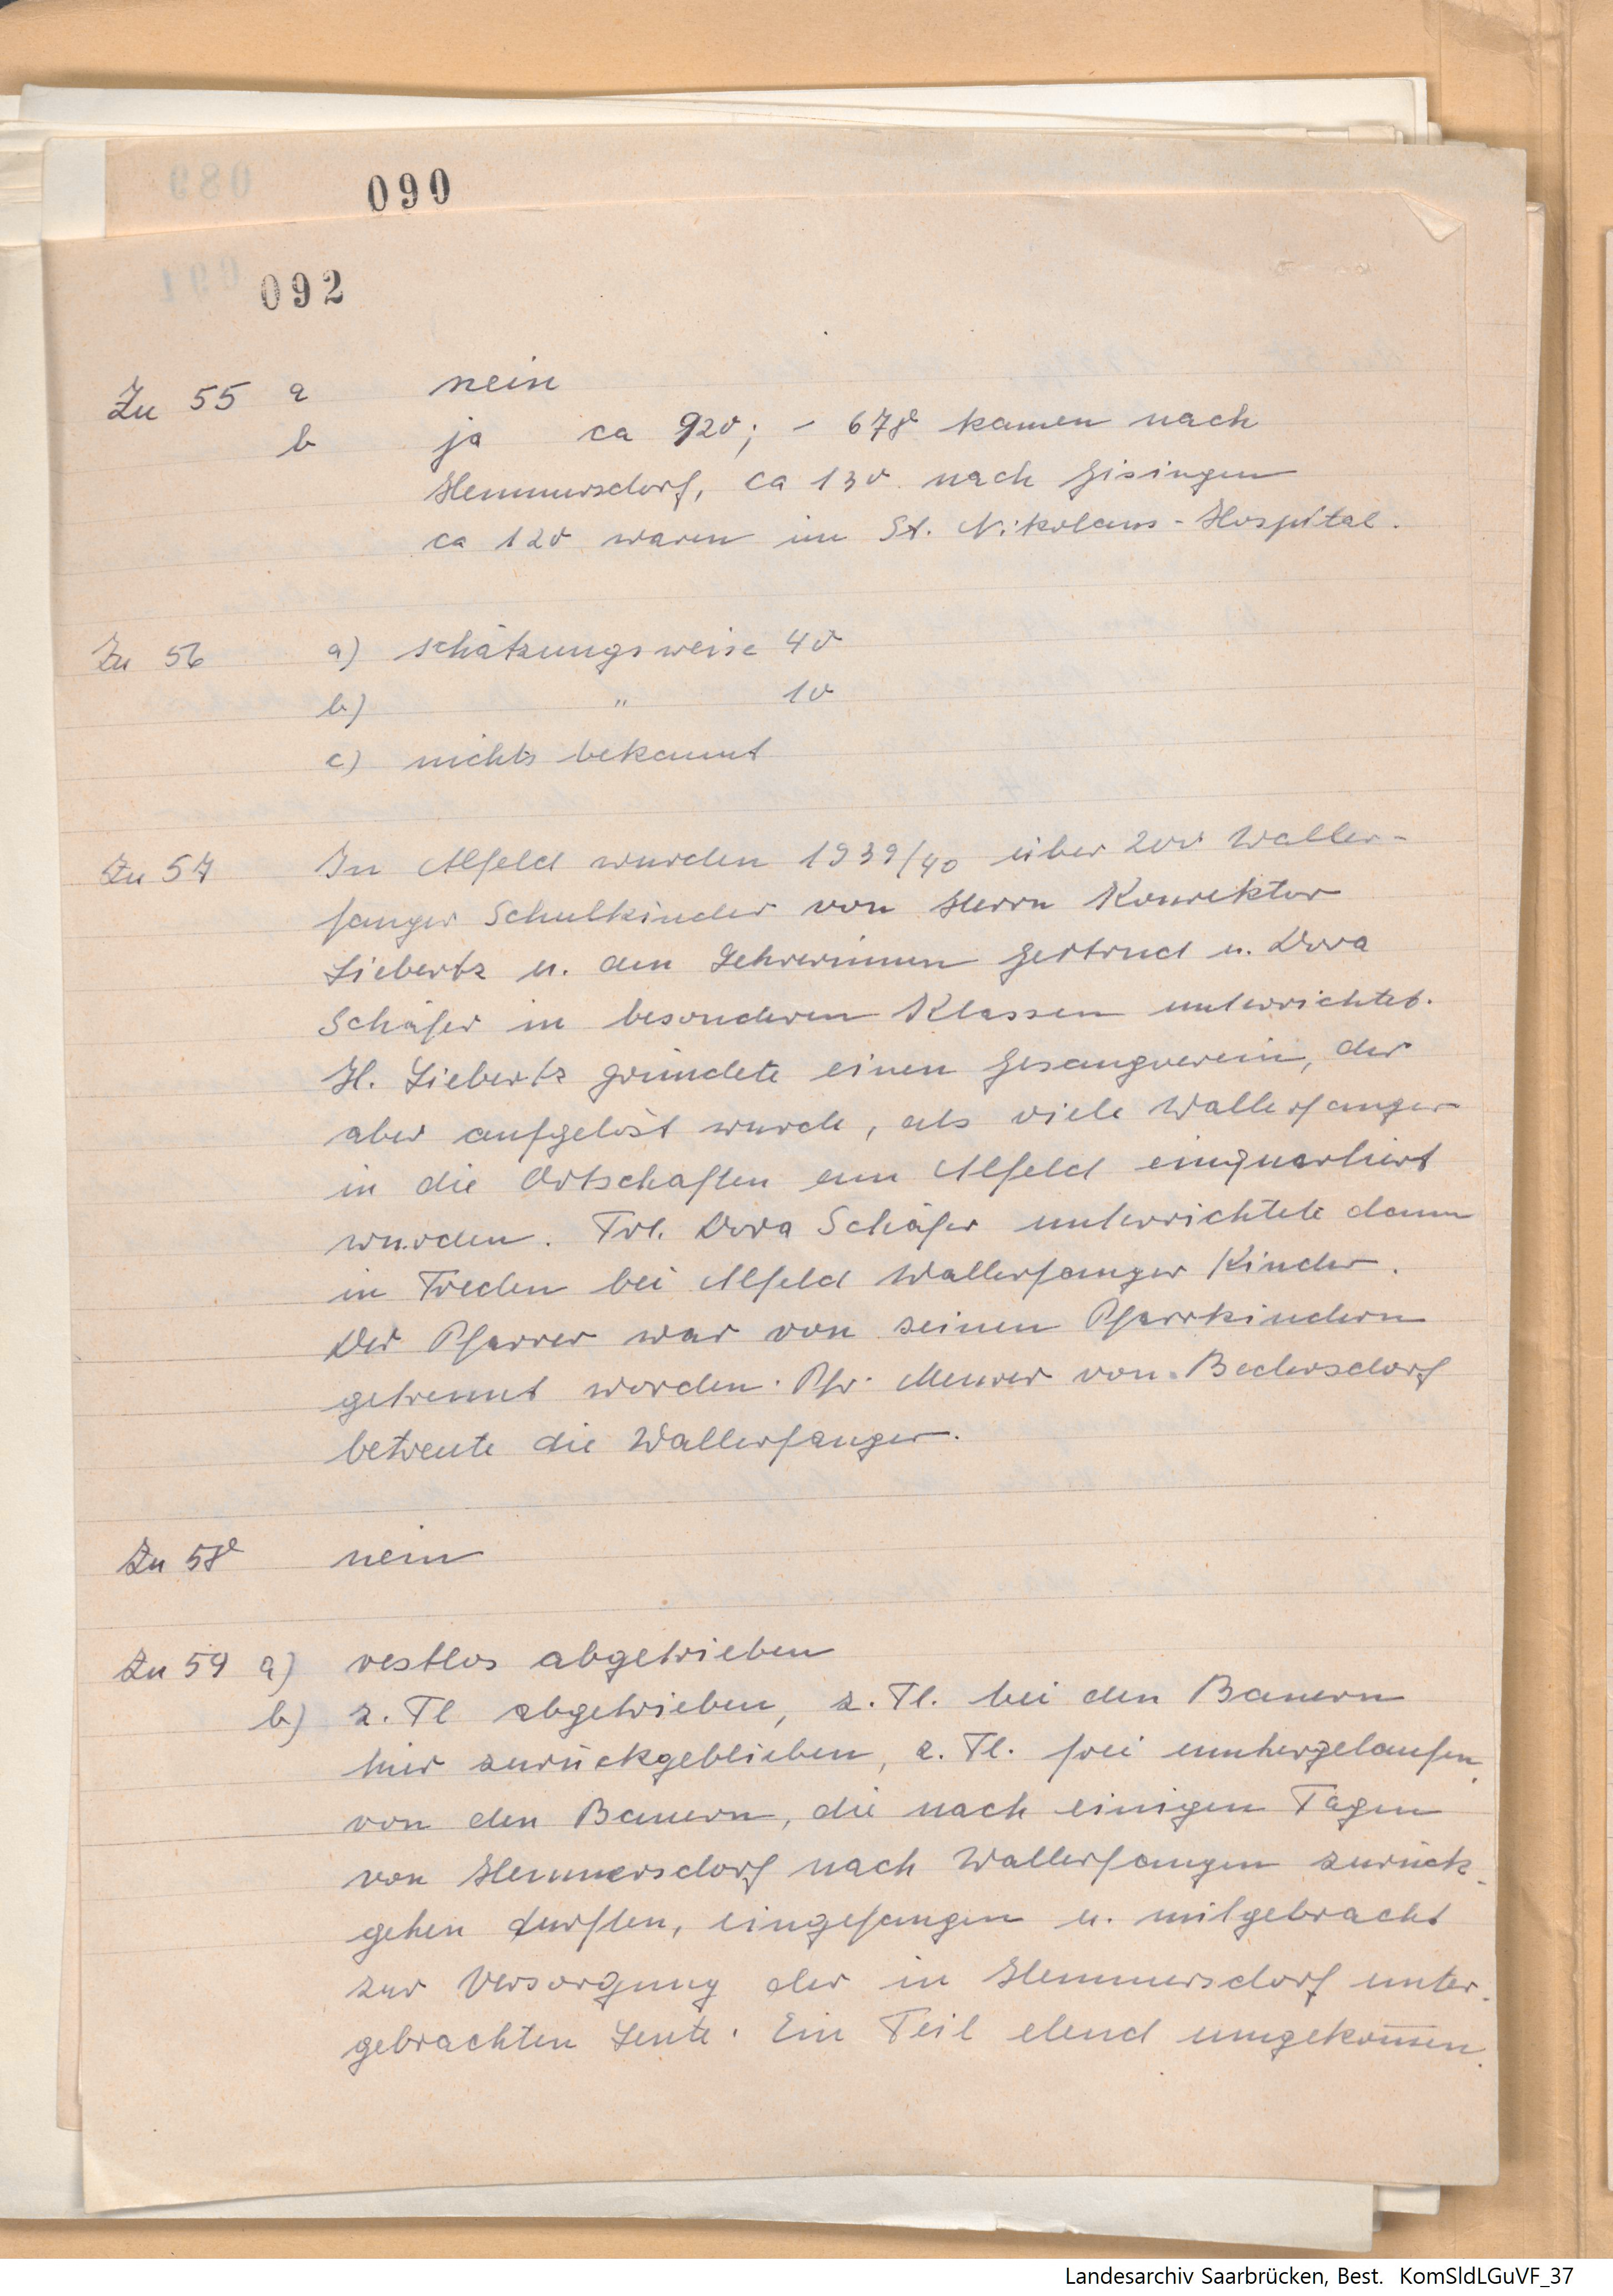 090
092
Zu 55 a nein
b ja ca 920; - 678 kamen nach
Hemmersdorf, ca 130 nach Gisingen
ca 120 waren im St. Nikolaus-Hospital.
Zu 56 a) schätzungsweise 40
b) " 10
c) nichts bekannt
Zu 57 In Alfeld wurden 1939/40 über 200 Waller-
fanger Schulkinder von Herrn Konrektor
Liebertz u. den Lehrerinnen Gertrud u. Dora
Schäfer in besonderen Klassen unterrichtet.
H. Liebertz gründete einen Gesangverein, der
aber aufgelöst wurde, als viele Wallerfanger
in die Ortschaften um Alfeld einquartiert
wurden. Frl. Dora Schäfer unterrichtete dann
in Freden bei Alfeld Wallerfanger Kinder.
Der Pfarrer war von seinen Pfarrkindern
getrennt worden. Pfr. Meurer von Bedersdorf
betreute die Wallerfanger.
Zu 58 nein
Zu 59 a) restlos abgetrieben
b) z. Tl abgetrieben, z. Tl. bei den Bauern
hier zurückgeblieben, z. Tl. frei umhergelaufen,
von den Bauern, die nach einigen Tagen
von Hemmersdorf nach Wallerfangen zurück-
gehen durften, eingefangen u. mitgebracht
zur Versorgung der in Hemmersdorf unter-
gebrachten Leute. Ein Teil elend umgekom̅en.
Landesarchiv Saarbrücken, Best. KomSldLGuVF_37